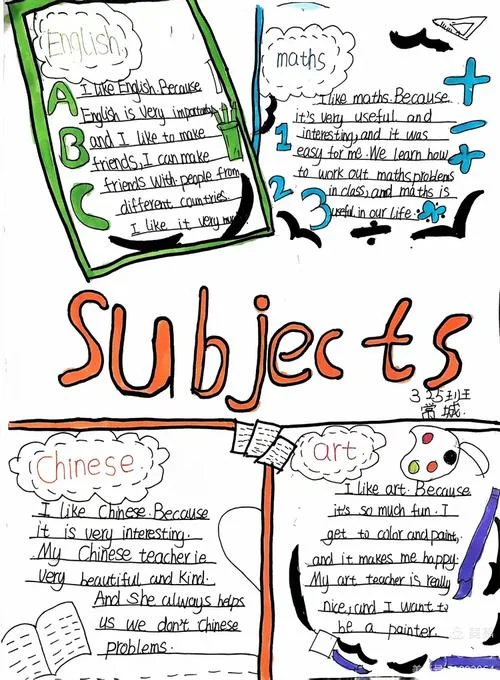 English
A
B
C
I like English. Because
English is very important,
and I like to make
friends, I can make
friends with people from
different countries.
I like it very much
maths
I like maths. Because
it's very useful and
interesting, and it was
easy for me. We learn how
to work out maths problems
in class, and maths is
useful in our life.
1
2
3
+
-
+
×
÷
Subjects
325班
常城.
Chinese
I like Chinese. Because
it is very interesting.
My Chinese teacher is
very beautiful and kind.
And she always helps
us we don't Chinese
problems.
art
I like art. Because
it's so much fun. I
get to color and paint,
and it makes me happy.
My art teacher is really
nice, and I want to
be a painter.